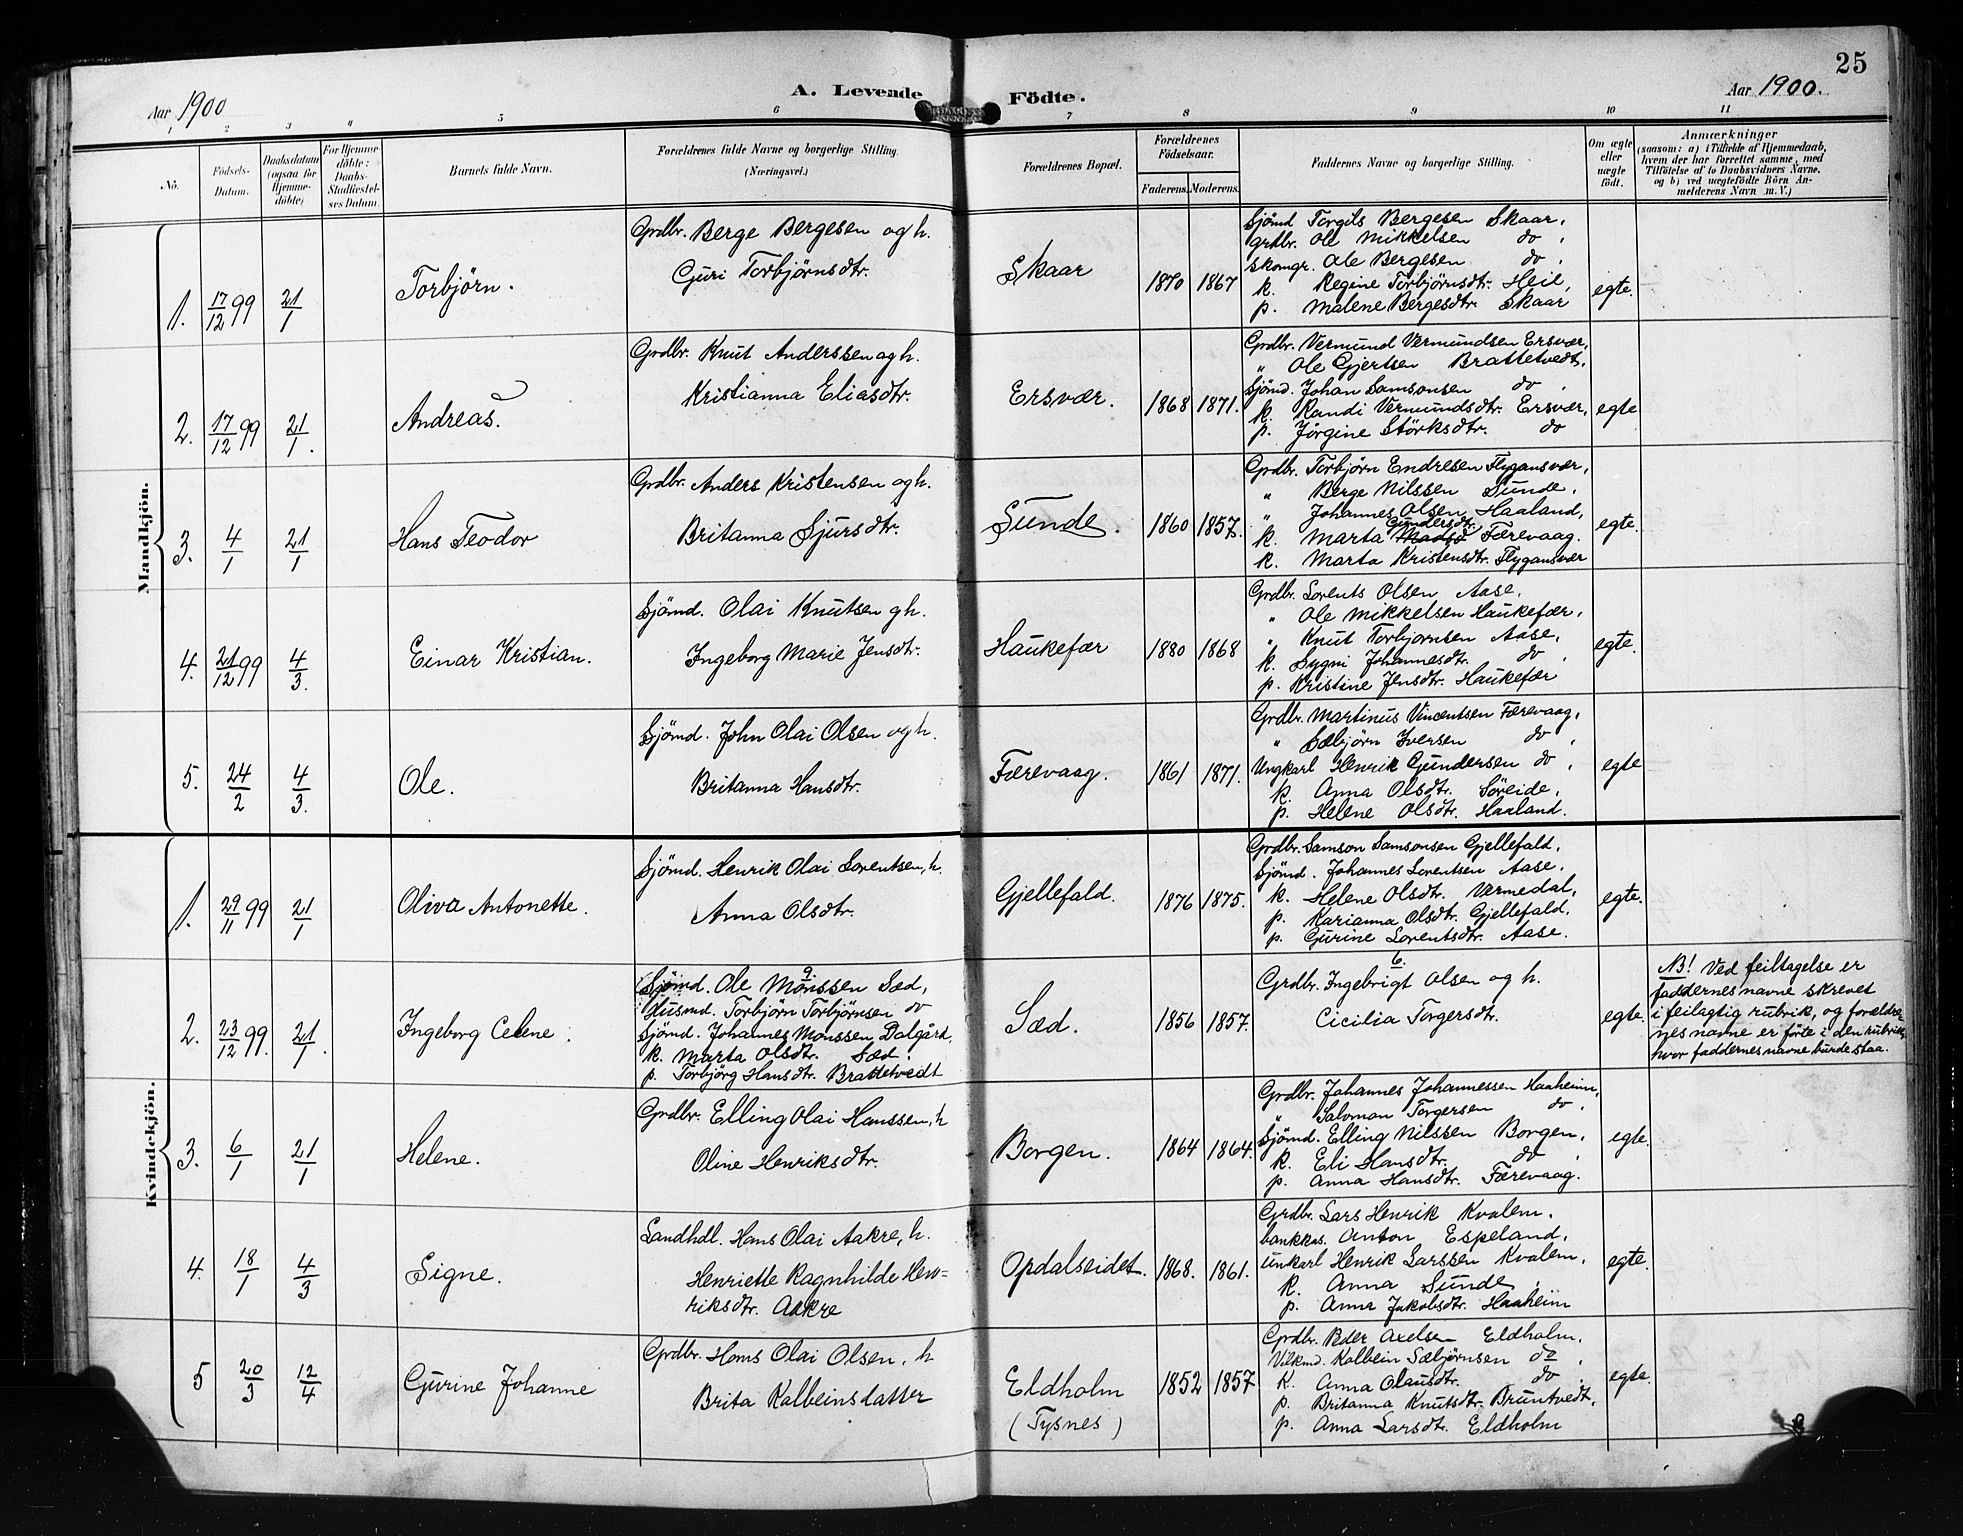 25
Aar 1900
A. Levende Födte.
Aar 1900.
1 2 3 4 5 6 7 8 9 10 11
No.
Födsels-Datum.
Daabsdatum (ogsaa for Hjemme-döbte)
For Hjemme-döbte: Daabs-Stadfæstel-ses Datum.
Barnets fulde Navn.
Forældrenes fulde Navne og borgerlige Stilling.
(Næringsvei.)
Forældrenes Bopæl.
Forældrenes Födselsaar.
Faderens. Moderens.
Faddernes Navne og borgerlige Stilling.
Om ægte eller uægte födt.
Anmærkninger
(saasom: a) i Tilfælde af Hjemmedaab,
hvem der har forrettet samme, med
Tilföielse af to Daabsvidners Navne.
og b) ved uægtefödte Börn An-
melderens Navn m. V.)
Mandkjön.
1. 17/12 99 21/1 Torbjörn.
Grdbr. Berge Bergesen og h.
Guri Torbjörnsdtr.
Skaar 1870 1867
Sjömd Torgils Bergesen Skaar,
grdbr. Ole Mikkelsen do,
skomgr. Ole Bergesen do,
k. Regine Torbjörnsdtr. Heil,
p. Malene Bergesdtr. Skaar
egte.
2. 17/12 99 21/1. Andreas.
Grdbr. Knut Anderssen og h.
Kristianna Eliasdtr.
Ersvær. 1868 1871.
Grdbr. Vermund Vermundsen Ersvær,
" Ole Gjertsen Brattetvedt,
Sjömd. Johan Samsonsen do,
k. Randi Vermundsdtr. Ersvær,
p. Jörgine Störksdtr. do
egte
3. 4/1 21/1 Hans Teodor
Grdbr. Anders Kristensen og h.
Britanna Sjursdtr.
Sunde. 1860 1857.
Grdbr. Torbjörn Endresen Flygansvær,
" Berge Nilssen Sunde,
" Johannes Olsen Haaland,
Gundersdtr.
k. Marta Færevaag.
k. Marta Kristensdtr. Flygansvær
egte.
4. 21/12 99 4/3. Einar Kristian.
Sjömd. Olai Knutsen g h.
Ingeborg Marie Jensdtr.
Haukefær 1880 1868
Grdbr. Lorents Olsen Aase,
" Ole Mikkelsen Haukefær,
" Knut Torbjornsen Aase,
k. Sygni Johannesdtr. do,
p. Kristine Jensdtr. Haukefær
egte.
5. 24/2 4/3. Ole.
Sjömd. John Olai Olsen og h.
Britanna Hansdtr.
Færevaag. 1861 1871.
Grdbr. Martinus Vincentsen Færevaag,
" Sæbjörn Iversen do,
Ungkarl Henrik Gundersen do,
k. Anna Olsdtr. Söreide,
p. Helene Olsdtr. Haaland.
egte
Kvindekjön.
1. 29/11 99 21/1 Oliva Antonette.
Sjömd. Henrik Olai Lorentsen, h.
Anna Olsdtr.
Gjellefald. 1876 1875.
Grdbr. Samson Samsonsen Gjellefald,
Sjömd. Johannes Lorentsen Aase,
k. Helene Olsdtr. Vermedal,
p. Karianna Olsdtr. Gjellefald,
p. Gurine Lorentsdtr. Aase.
egte.
2. 23/12 99. 21/1. Ingeborg Celene.
9.
Sjömd. Ole Monssen Sæd,
Husmd. Torbjörn Torbjörnsen do
Sjömd. Johannes Monssen Dalgård,
k. Marta Olsdtr. Sæd.
p. Torbjörg Hansdtr. Brattetvedt
Sæd. 1856 1857.
6.
Grdbr. Ingebrigt Olsen og h.
Cicilia Torgersdtr.
egte.
NB! Ved feiltagelse er
faddernes navne skrevet
i feilagtig rubrik, og forældre-
nes navne er förte i den rubrik,
hvor faddernes navne burde staa.
3. 6/1 21/1 Helene.
Grdbr. Elling Olai Hanssen, h
Oline Henriksdtr.
Borgen. 1864 1864.
Grdbr. Johannes Johannessen Haaheim,
" Salomon Torgersen do,
Sjömd. Elling Nilssen Borgen,
k. Eli Hansdtr. do,
p. Anna Hansdtr. Færevaag.
egte.
4. 18/1 4/3 Signe.
Landhdl. Hans Olai Aakre, h.
Henriette Ragnhilde Hen-
riksdtr. Aakre
Opdalseidet. 1868. 1861.
Grdbr. Lars Henrik Kvalem,
bankkas. Anton Espeland,
unkarl Henrik Larssen Kvalem,
k. Anna Sunde,
p. Anna Jakobsdtr. Haaheim
egte.
5 20/3 12/4 Gurine Johanne
Grdbr. Hans Olai Olsen, h
Brita Kalbeinsdatter
Eldholm
(Tysnes)
1852 1857
Grdbr. Peder Axelsen Eldholm,
Vilkmd. Kalbein Sæbjörnsen do,
K. Anna Olausdtr. do,
p. Britanna Knutsdtr. Bruntvedt,
p. Anna Larsdtr. Eldholm
egte.